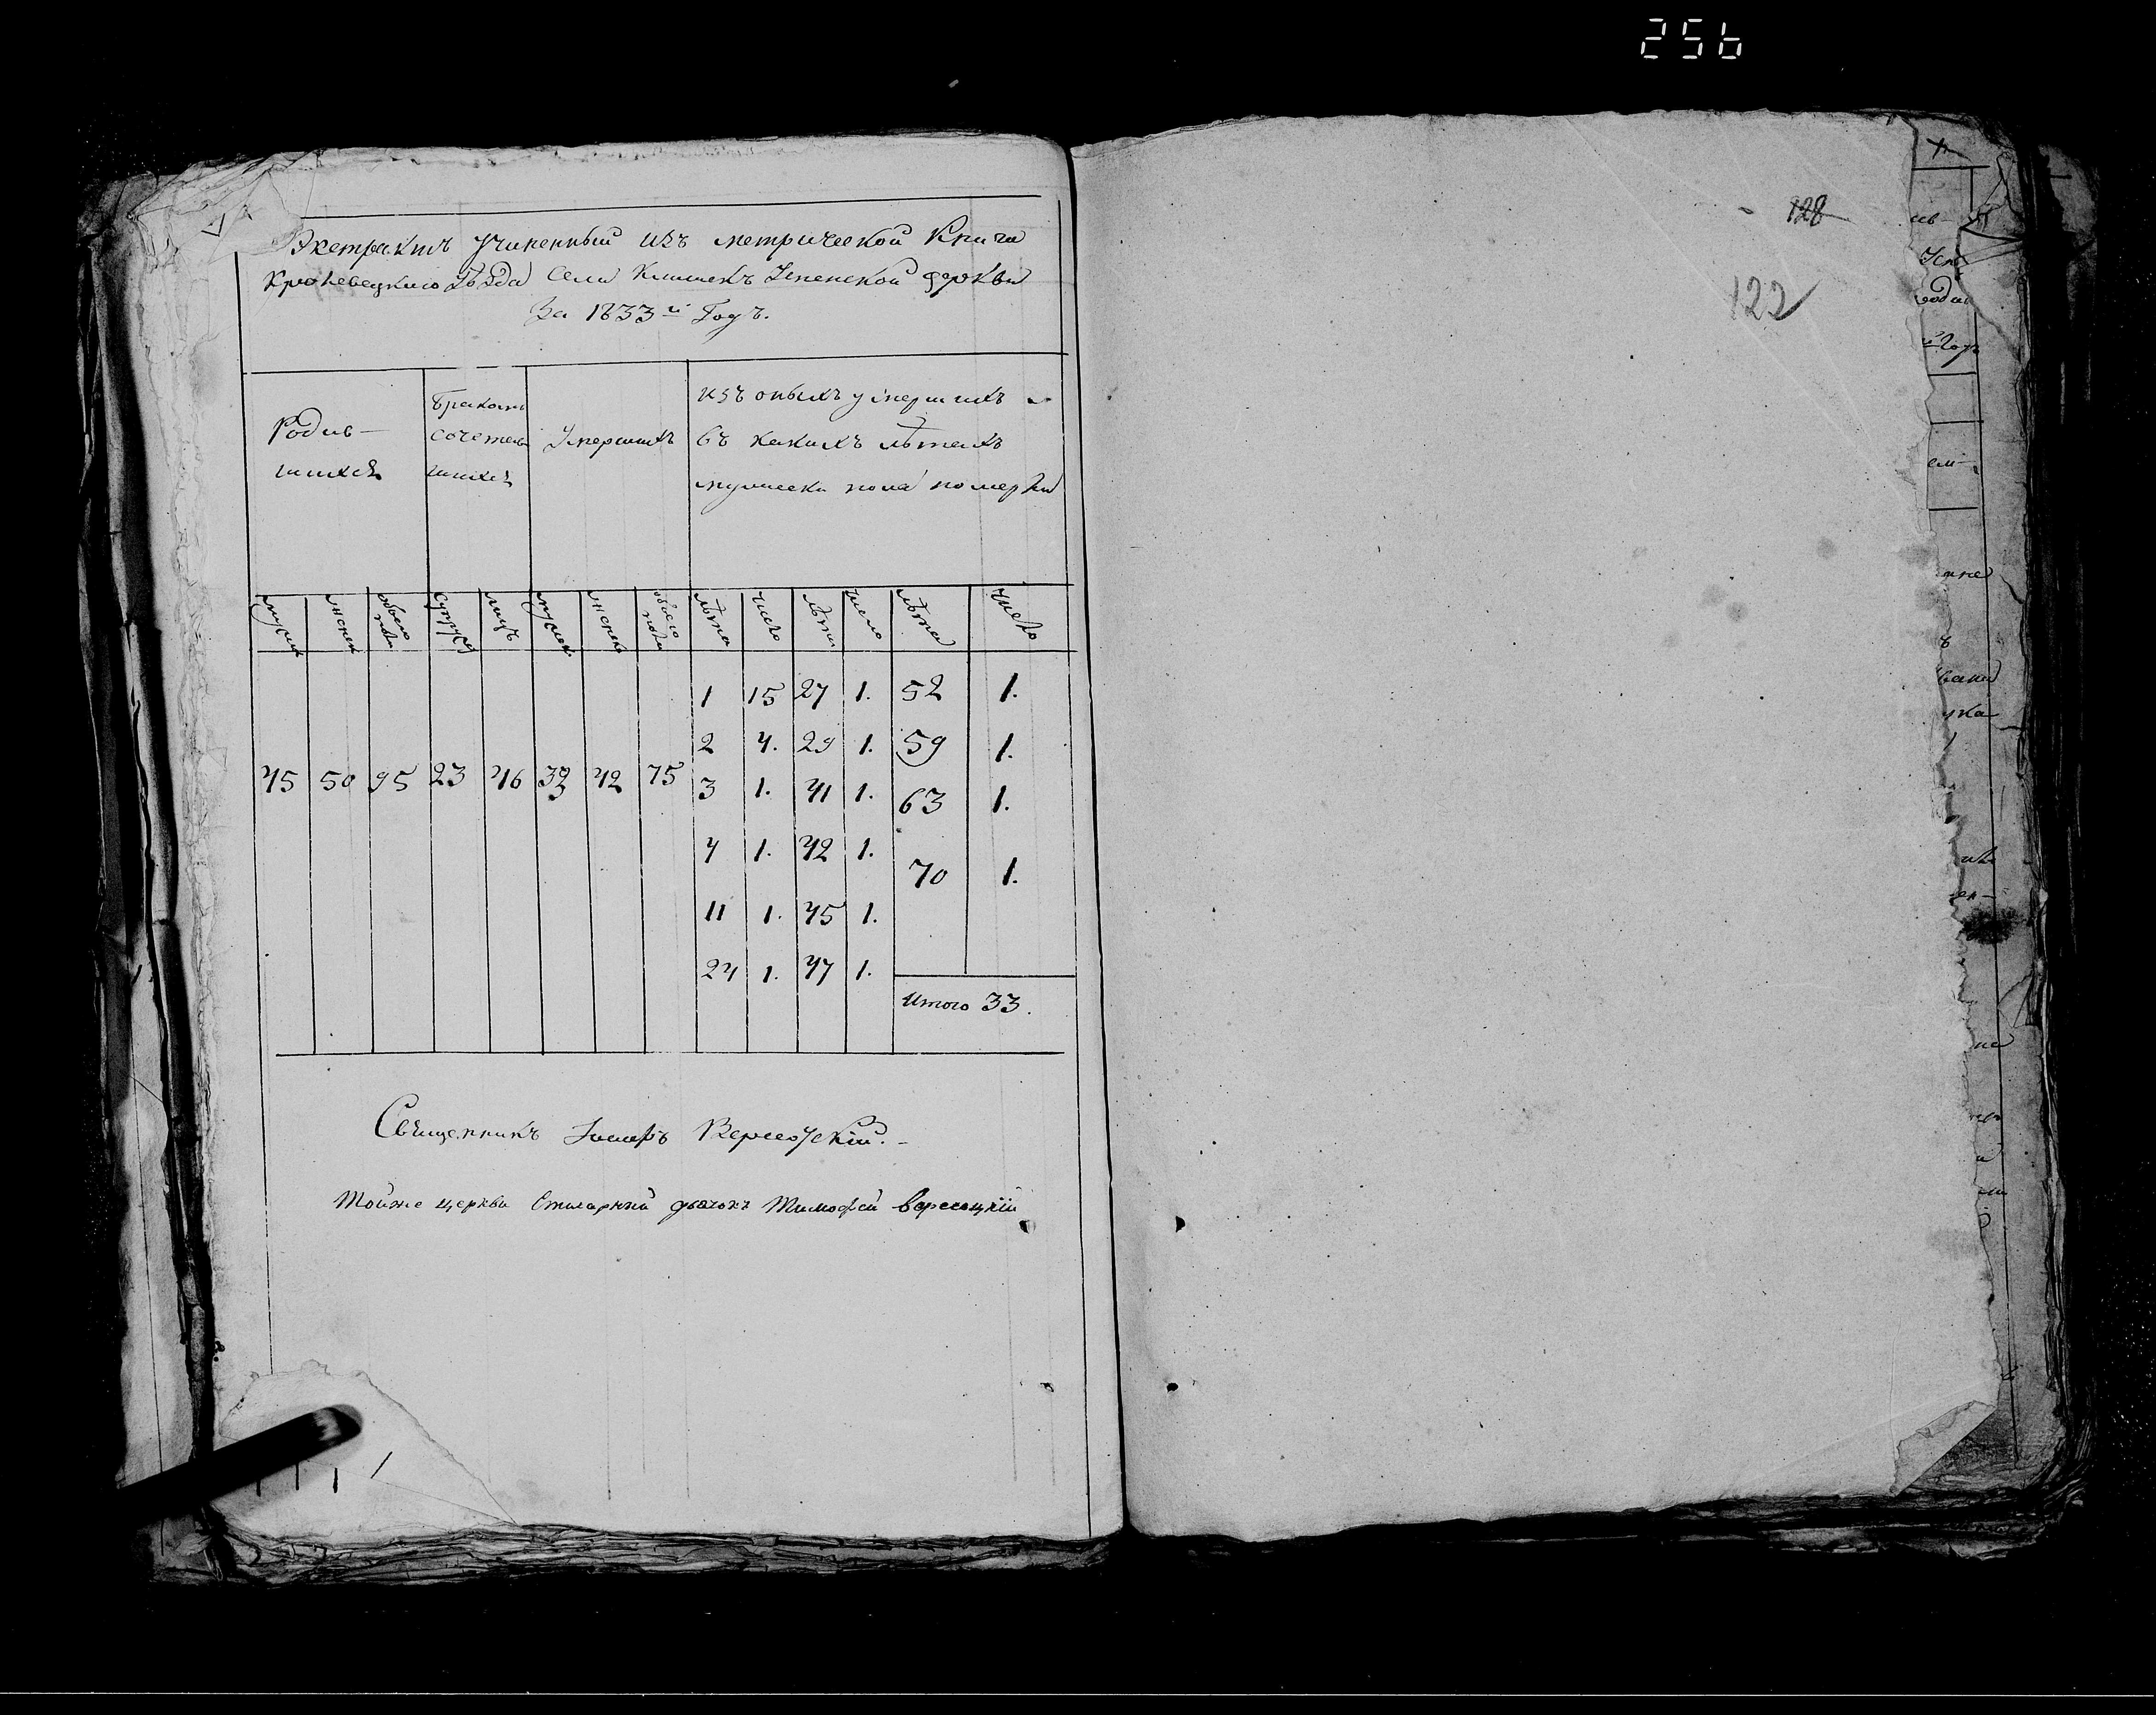 256
Экстрактъ Учиненный изъ метрической Книги
Кролевецкого Уѣзда Села Клишекъ Успенской церкви
За 1833й Годъ.
128
122
Родив-
шихся
бракомъ
сочетав
шихся
Умершихъ
изъ оныхъ умершихъ
въ какихъ лѣтахъ
мужеска пола померли
мужеск
женск
обоего пола
супруж
лицъ
мужеск
женск
обоего пола
лѣта
число
лѣта
число
лѣта
число
1 15 27 1. 52 1.
2 4. 29 1. 59 1.
45 50 95 23 46 33 42 75 3 1. 41 1. 63 1.
4 1. 42 1. 70 1.
11 1. 45 1.
24 1. 47 1.
Итого 33.
Священникъ Вересоцкій.
Тойже церкви дьячокъ Тимофей Вересоцкій